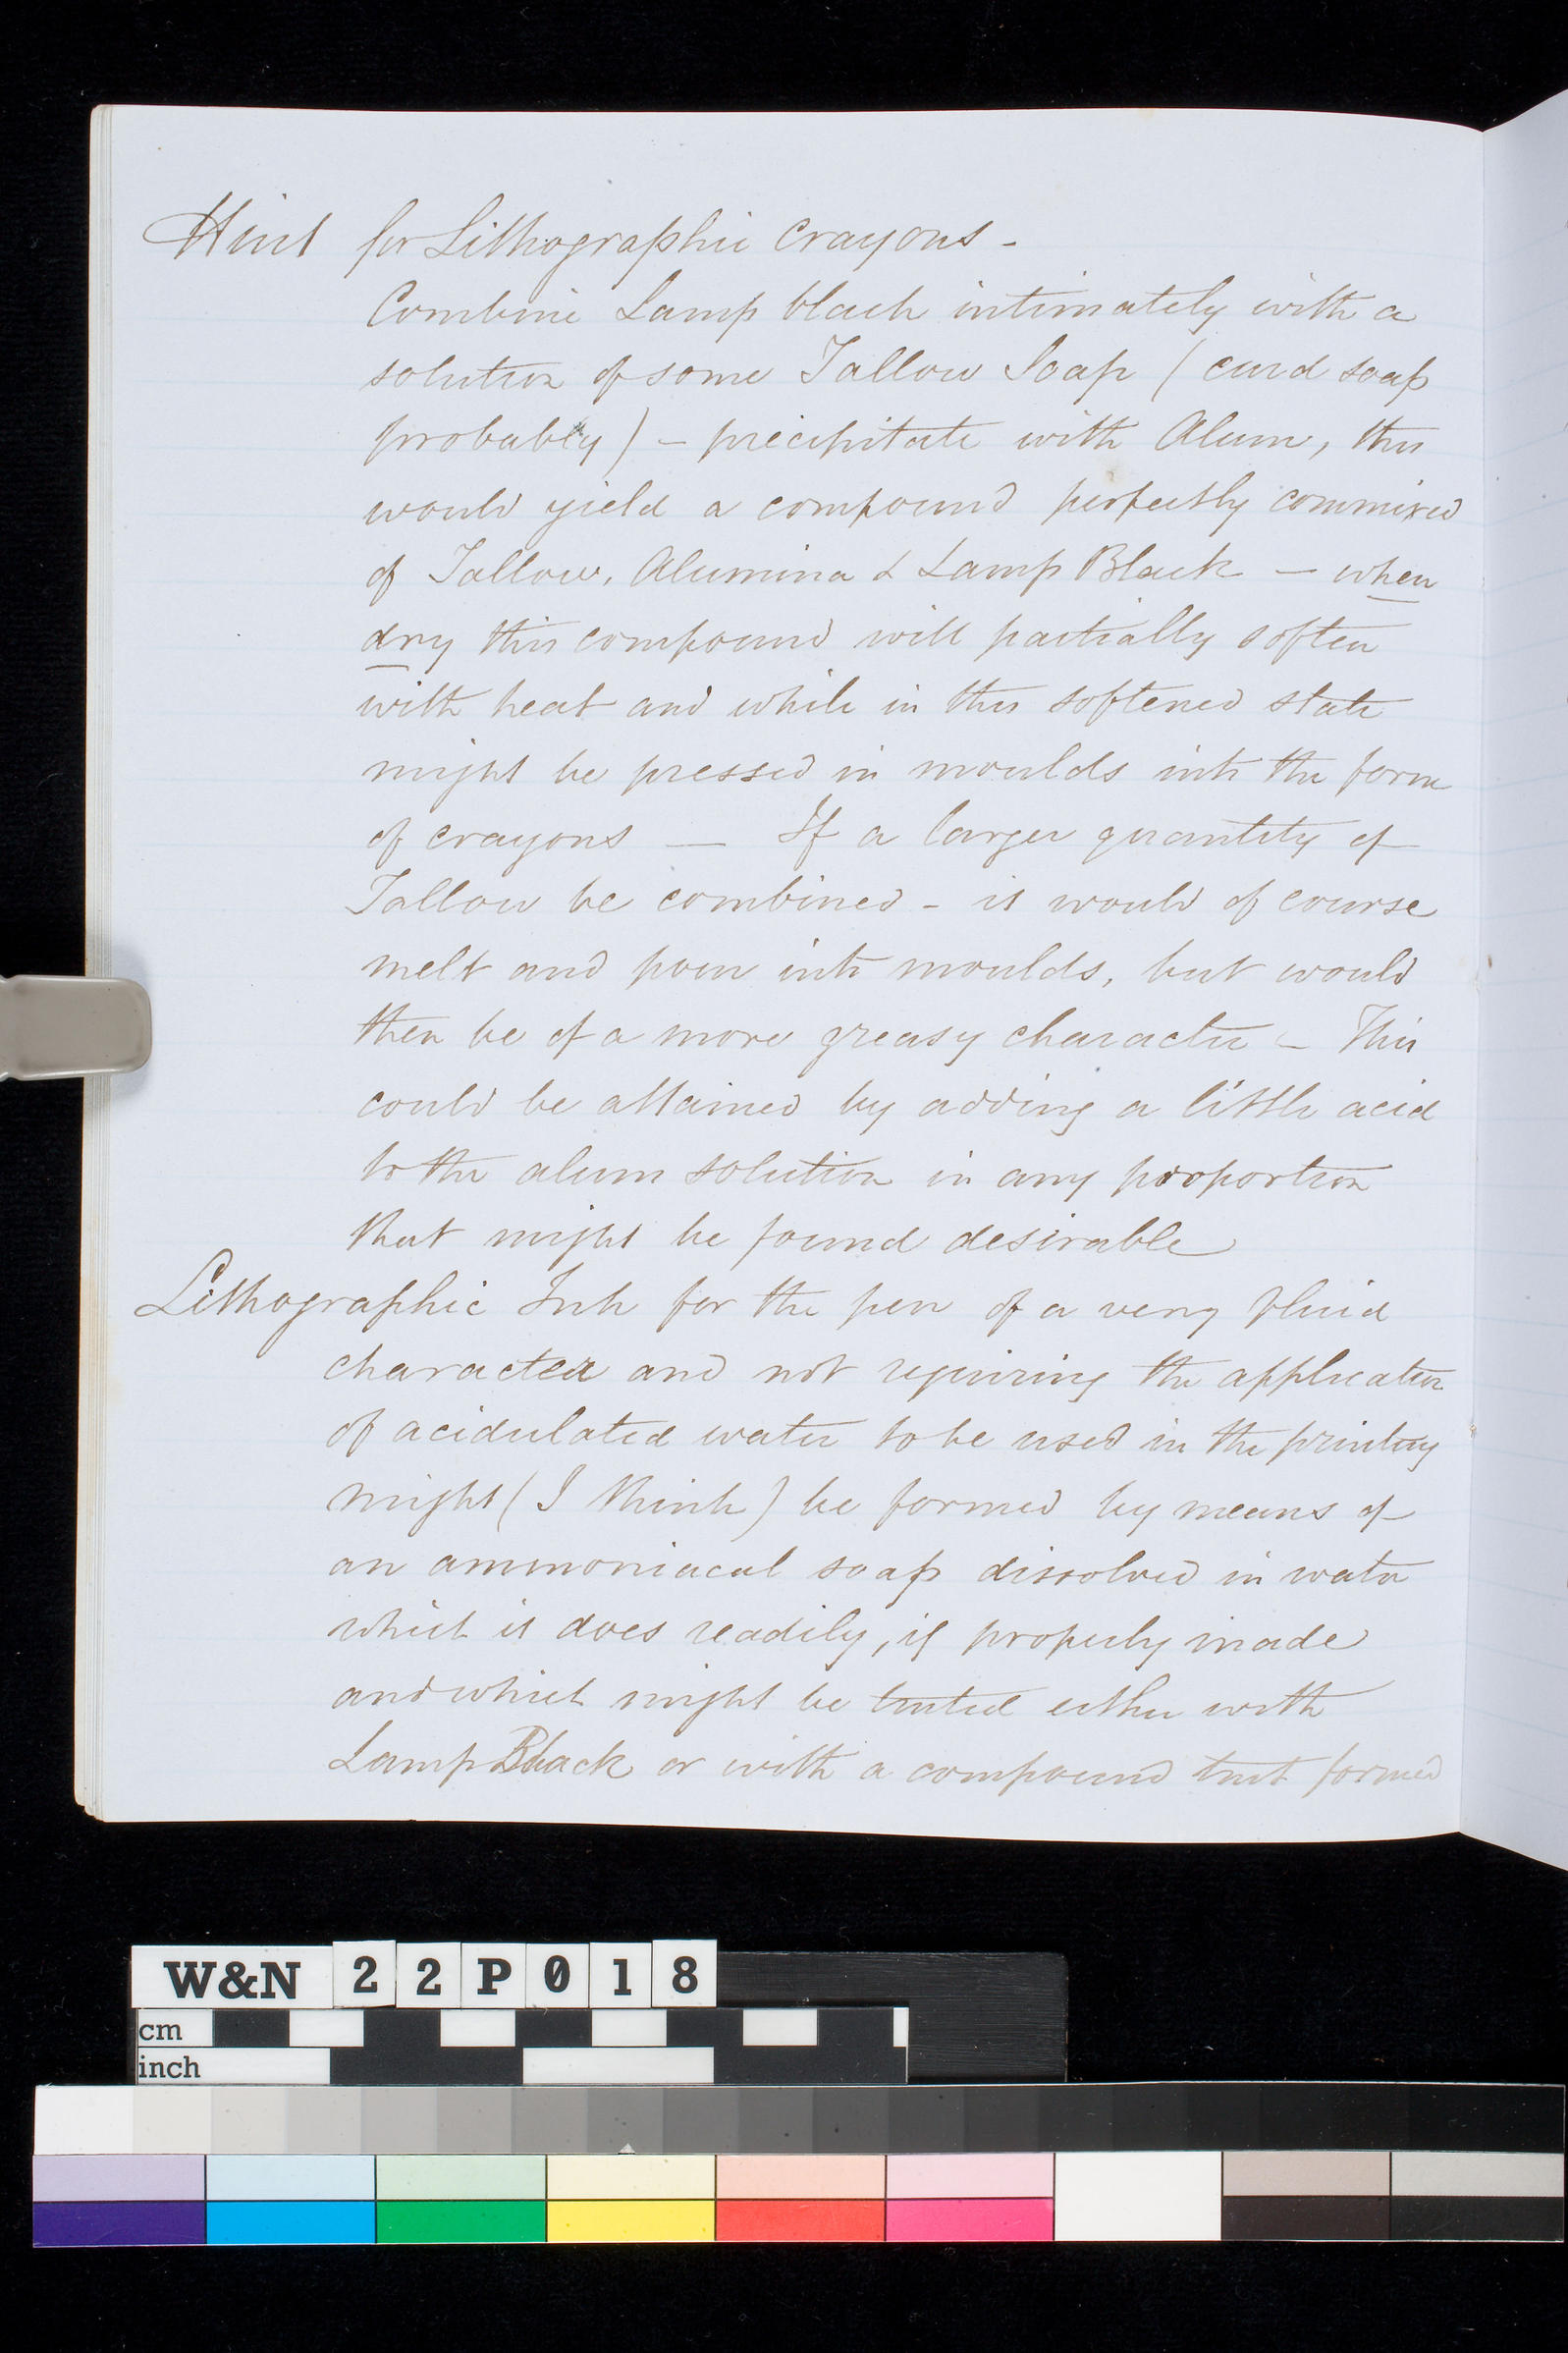 Hint for Lithographic Crayons -
Combine Lamp black intimately with a
solution of some Tallow Soap ( curd soap
probably ) - precipitate with Alum, this
would yield a compound perfectly commixed
of Tallow, Alumina & Lamp Black - when
dry this compound will partially soften
with heat and while in this softened state
might be pressed in moulds into the form
of crayons — If a larger quantity of
Tallow be combined - it would of course
melt and pour into moulds, but would
then be of a more greasy character - This
could be attained by adding a little acid
to the alum solution in any proportion
that might be found desirable
Lithographic Ink for the pen of a very fluid
character and not requiring the application
of acidulated water to be used in the printing
might ( I think ) be formed by means of
an ammoniacal soap dissolved in water
which it does readily, if properly made
and which might be tinted either with
Lamp Black or with a compound tint formed
W&N 22P018
cm
inch